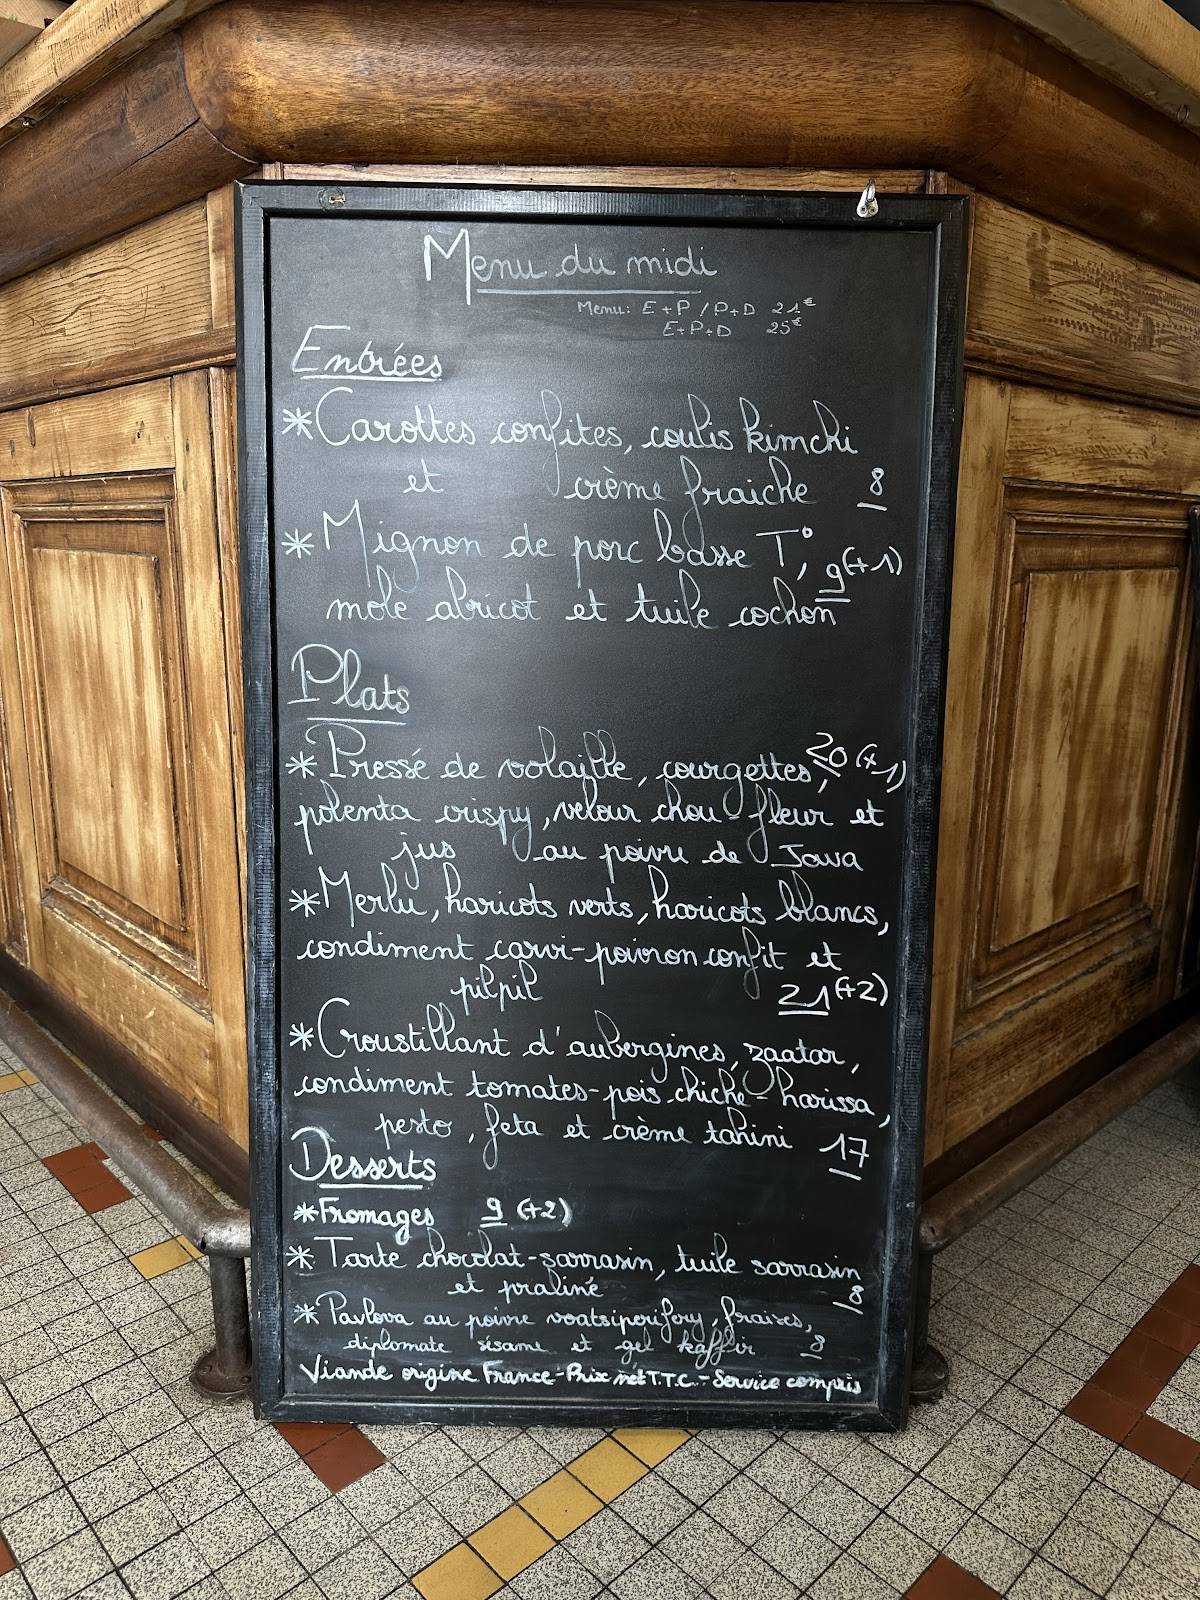 Menu du midi
Menu: E+P / P+D 21€
E+P+D 25€
Entrées
*Carottes confites, coulis kimchi
et crème fraiche 8
*Mignon de porc basse T°, 9(+1)
mole abricot et tuile cochon
Plats
*Pressé de volaille, courgettes, 20(+1)
polenta crispy, velour chou-fleur et
jus au poivre de Jawa
*Merlu, haricots verts, haricots blancs,
condiment carvi-poivron confit et
pilpil 21(+2)
*Croustillant d'aubergines, zaatar,
condiment tomates-pois chiche-harissa,
pesto, feta et crème tahini 17
Desserts
*Fromages 9 (+2)
*Tarte chocolat-sarrasin, tuile sarrasin
et praliné 8
*Pavlova au poivre voatsiperifery, fraises,
diplomate sésame et gel kaffir 8
Viande origine France-Prix net T.T.C.-Service compris